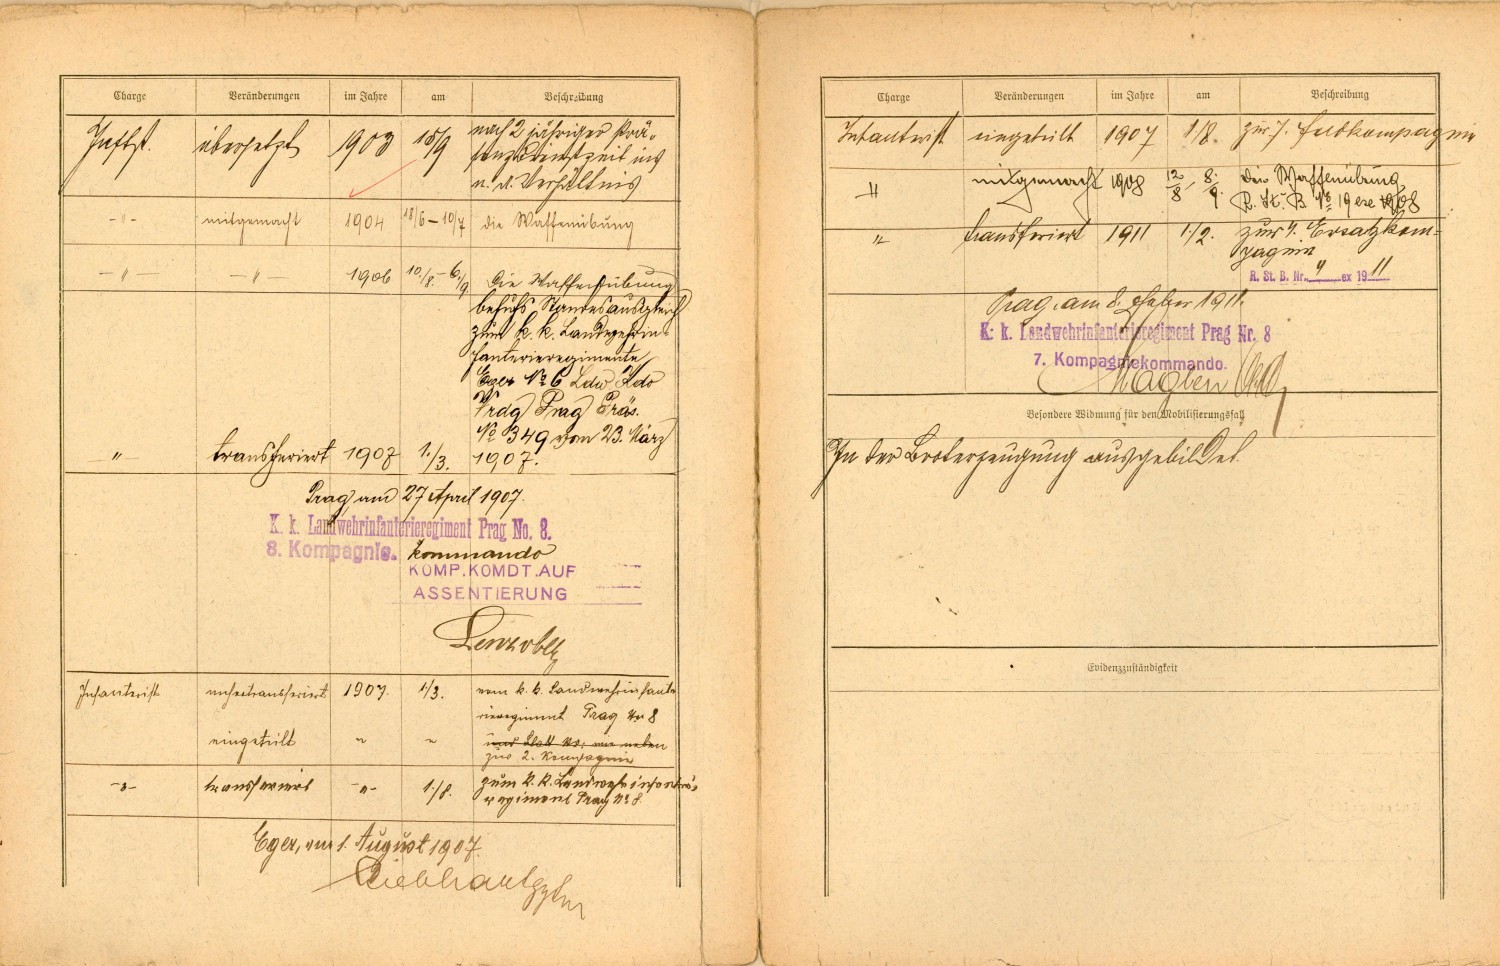 Charge Veränderungen im Jahre am Beschreibung
Inftst. übersetzt 1903 18/9 nach 2 jähriger Prä-
senzdienstzeit ins
n. a. Verhältnis
-"- mitgemacht 1904 18/6-10/7 die Waffenübung
-"- -"- 1906 10./8.-6./9 Die Waffenübung
behufs Standesausgleich
zum k. k. Landwehrin-
fanterieregimente
Eger No 6 Ldw Kdo
Prag Präs.
No 349 vom 23. März
" transferiert 1907 1./3. 1907.
Prag, am 27 April 1907.
K. k. Landwehrinfanterieregiment Prag No. 8.
8. Kompagnie. kommando
KOMP.KOMDT.AUF
ASSENTIERUNG
Infanterist anhertransferiert 1907. 1/3. vom k. k. Landwehrinfante
rieregiment Prag Nr 8
eingeteilt " "
zur 2. Kompagnie
-"- transferiert -"- 1./8. zum k. k. Landwehrinfanterie-
regiment Prag No 8.
Eger, am 1. August 1907.
Charge Veränderungen im Jahre am Beschreibung
Infanterist eingeteilt 1907 1/8. zur 7. Feldkompagnie
" mitgemacht 1908 12/8 - 8./9. die Waffenübung
R. St. B. No 19 exe 1908
" transferiert 1911 1./2. zur 4. Ersatzkom-
pagnie
R. St. B. Nr. 4 ex 1911
Prag, am 8. Feber 1911.
K. k. Landwehrinfanterieregiment Prag Nr. 8
7. Kompagniekommando.
Besondere Widmung für den Mobilisierungsfall
In der Broterzeugung ausgebildet.
Evidenzzuständigkeit